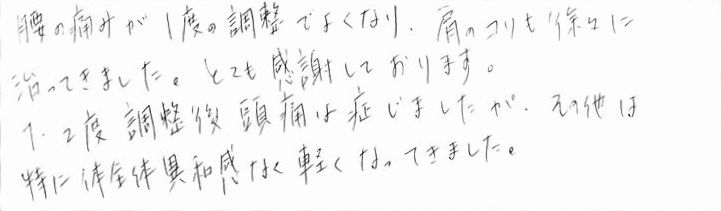 腰の痛みが1度の調整でよくなり、肩のコリも徐々に
治ってきました。とても感謝しております。
1、2度調整後頭痛は症じましたが、その他は
特に体全体異和感なく軽くなってきました。